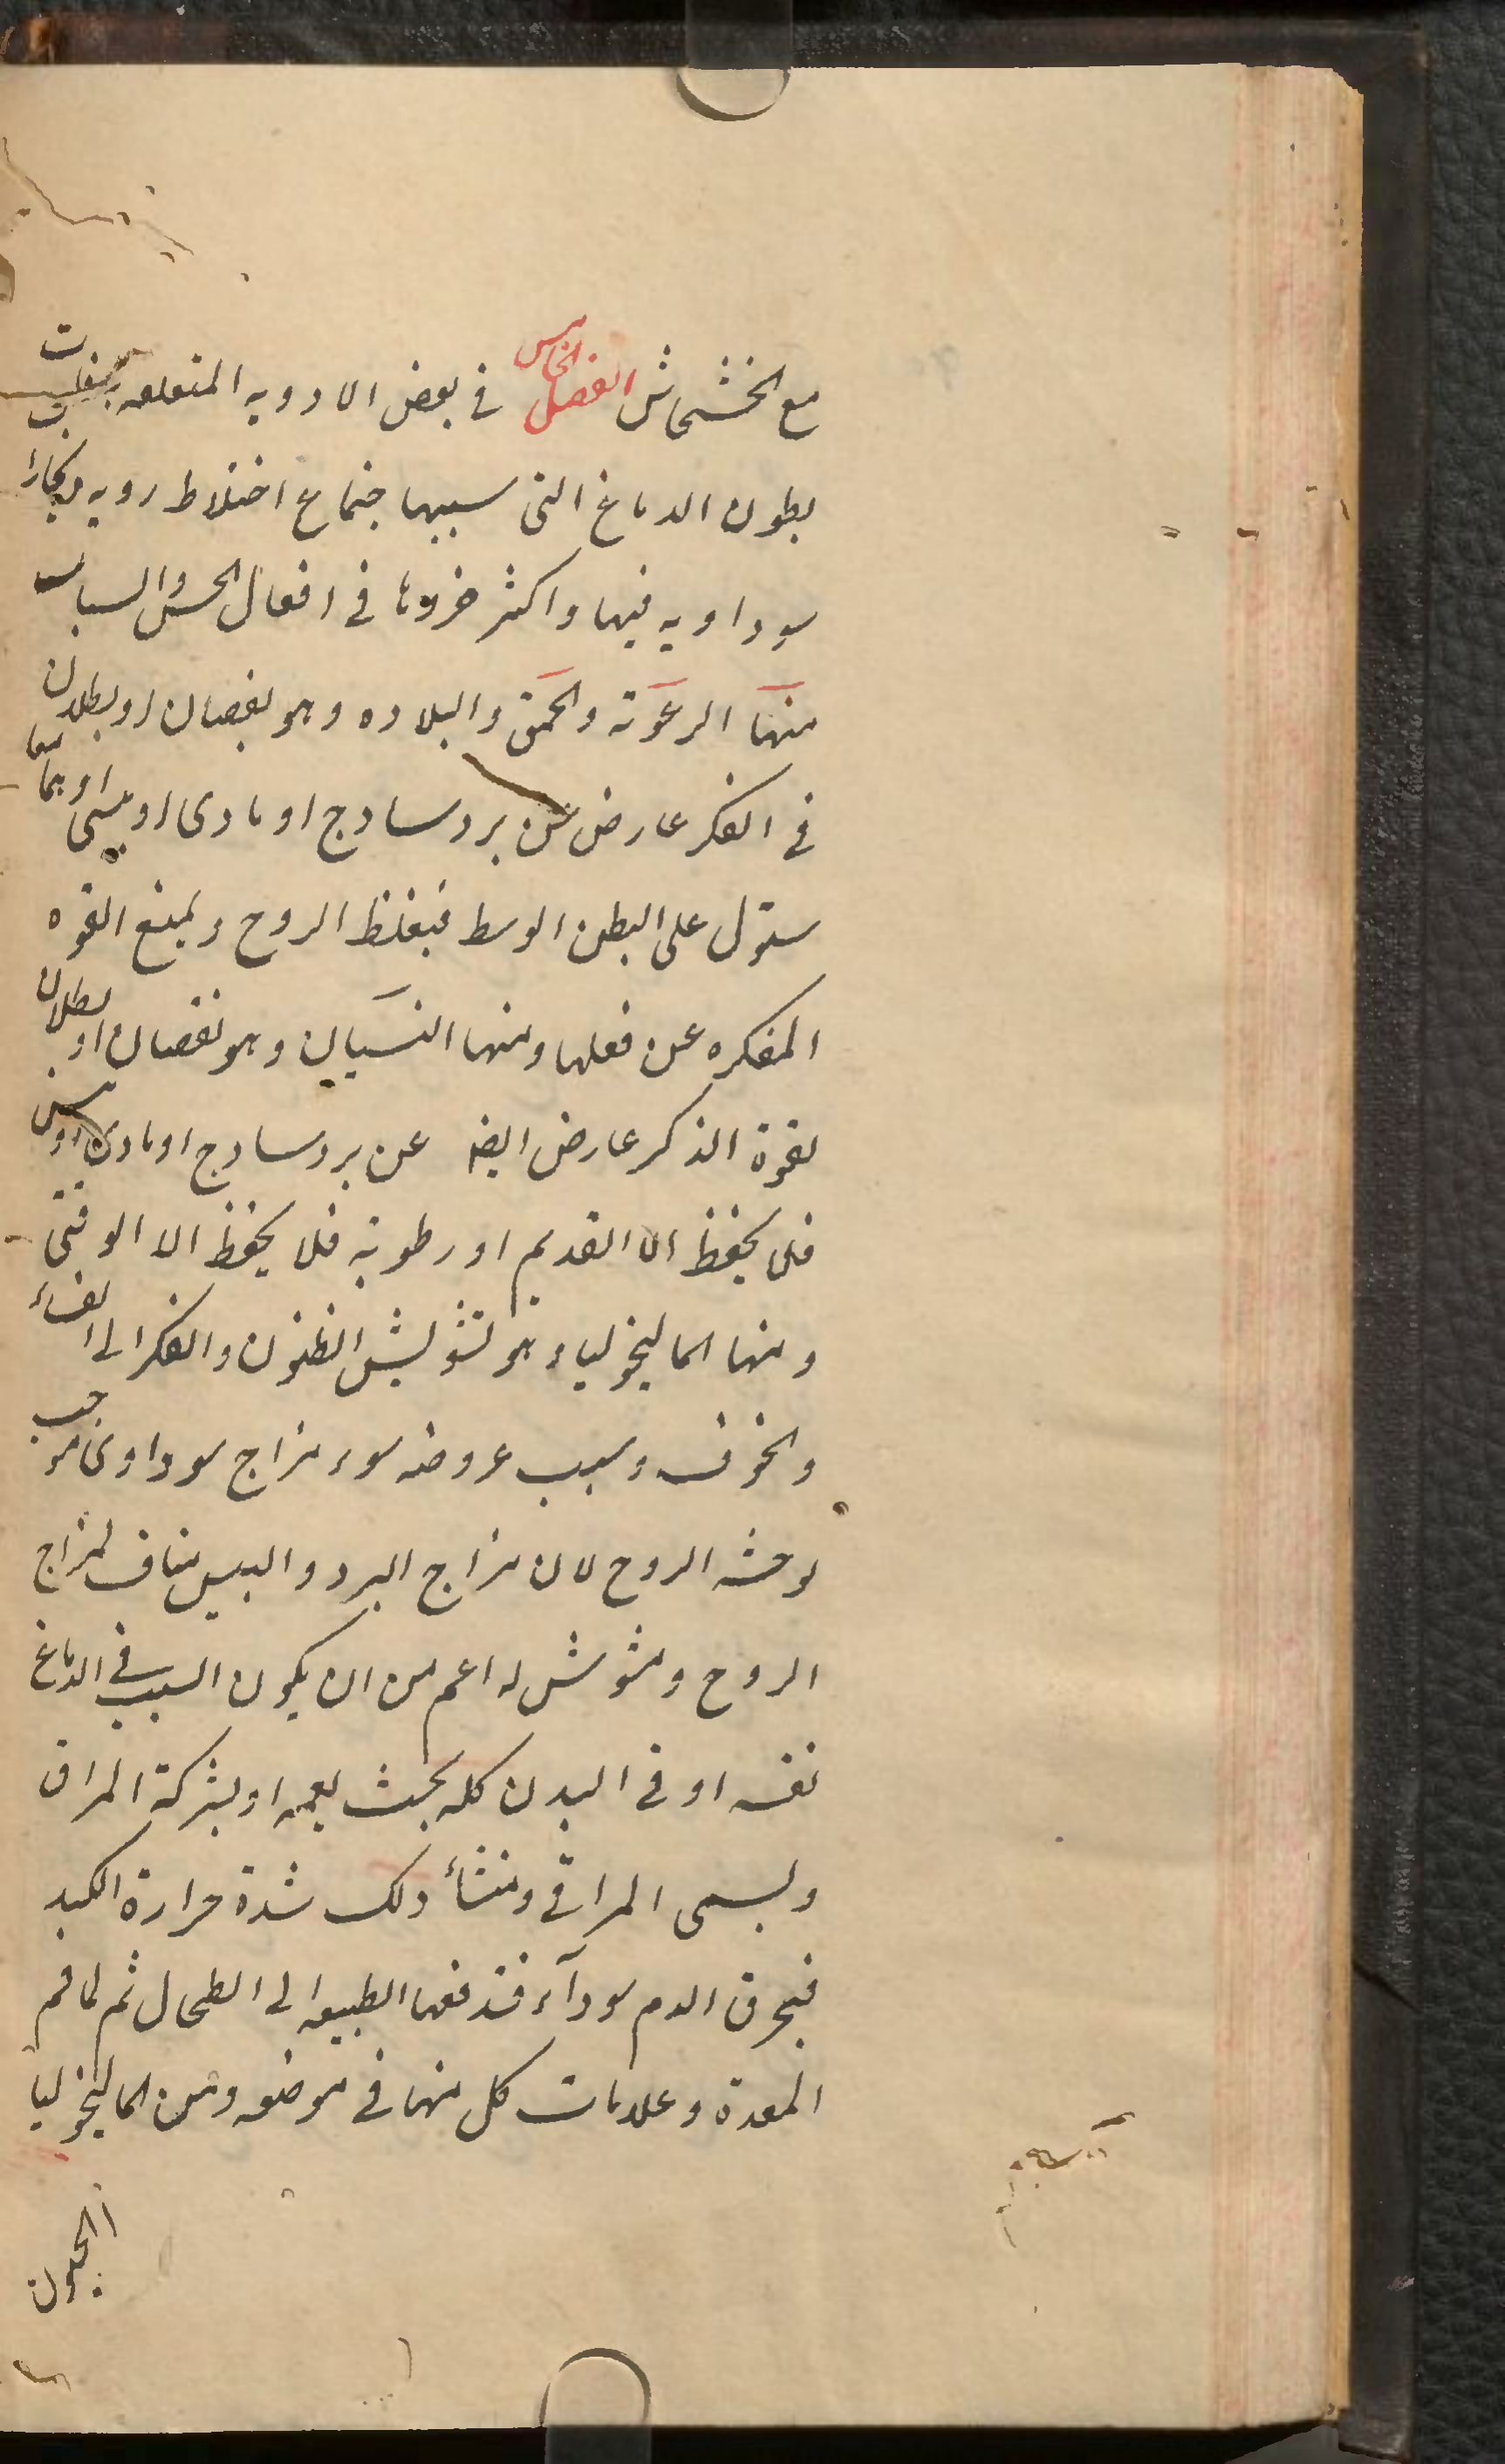 مع الخشخاش الفصل الخامس في بعض الادويه المتعلقه
بطون الدماغ التى سببها جتماع اخلاط رديه وبخارا
سوداويه فيها واكثر ضررها في افعال الحس والسبات
منها الرعونة والحمق والبلاده وهو نقصان او بطلان
في الفكر عارض عن برد ساذج او مادى او يبس او بهما معا
ستول على البطن الوسط فيغلظ الروح ويمنع القوه
المفكره عن فعلها ومنها النسيان وهو نقصان او بطلان
لقوة الذكر عارض ايضا عن برد ساذج او مادى او يبس
فلا يحفظ الا القديم او رطوبة فلا يحفظ الا الوقتى
ومنها الماليخوليا وهو تشويش الظنون والفكر الى الفساد
والخوف وسبب عروضه سوء مزاج سوداوى موجب
لوحشه الروح لان مزاج البرد واليبس مناف لمزاج
الروح ومشوش له اعم من ان يكون السبب في الدماغ
نفسه او في البدن كله بحيث يعمه او بشركة المراق
ويسمى المراقي ومنشأ ذلك شدة حرارة الكبد
فيحرق الدم سودآء فتدفعها الطبيعه الى الطحال ثم لما فم
المعدة وعلامات كل منها في موضعه ومن الماليخوليا
الجنون